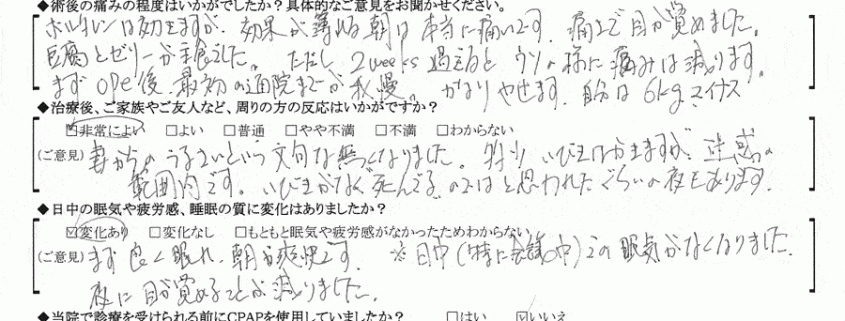 ◆術後の痛みの程度はいかがでしたか?具体的なご意見をお聞かせください。
ボルタレンは効きますが、効果が薄れる朝は本当に痛いです。痛みで目が覚めました。
豆腐とゼリーが主食でした。ただし 2weeks 過ぎるとウソの様に痛みは減ります。
まずOPE後、最初の通院までが我慢。かなりやせます。自分は6kgマイナス
◆治療後、ご家族やご友人など、周りの方の反応はいかがですか?
☑非常によい □よい □普通 □やや不満 □不満 □わからない
(ご意見) 妻からのうるさいという文句が無くなりました。多少いびきはかきますが、迷惑の
範囲内です。いびきがなく"死んでる"のではと思われたぐらいの夜もあります。
◆日中の眠気や疲労感、睡眠の質に変化はありましたか?
☑変化あり □変化なし □もともと眠気や疲労感がなかったためわからない
(ご意見) まず良く眠れ、朝が爽快です。 ※日中(特に会議中)での眠気がなくなりました。
夜に目が覚めることが減りました。
◆当院で診療を受けられる前にCPAPを使用していましたか? □はい ☑いいえ